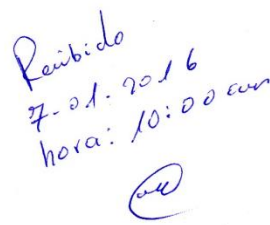 Recibido
7-01-2016
hora: 10:00 am